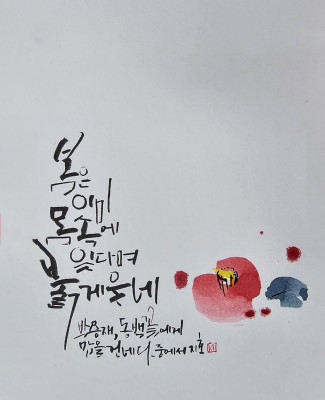 봄은
이미
몸속에
있다며
붉게웃네
박용재, 동백꽃에게
말을 건네다 - 중에서 지호